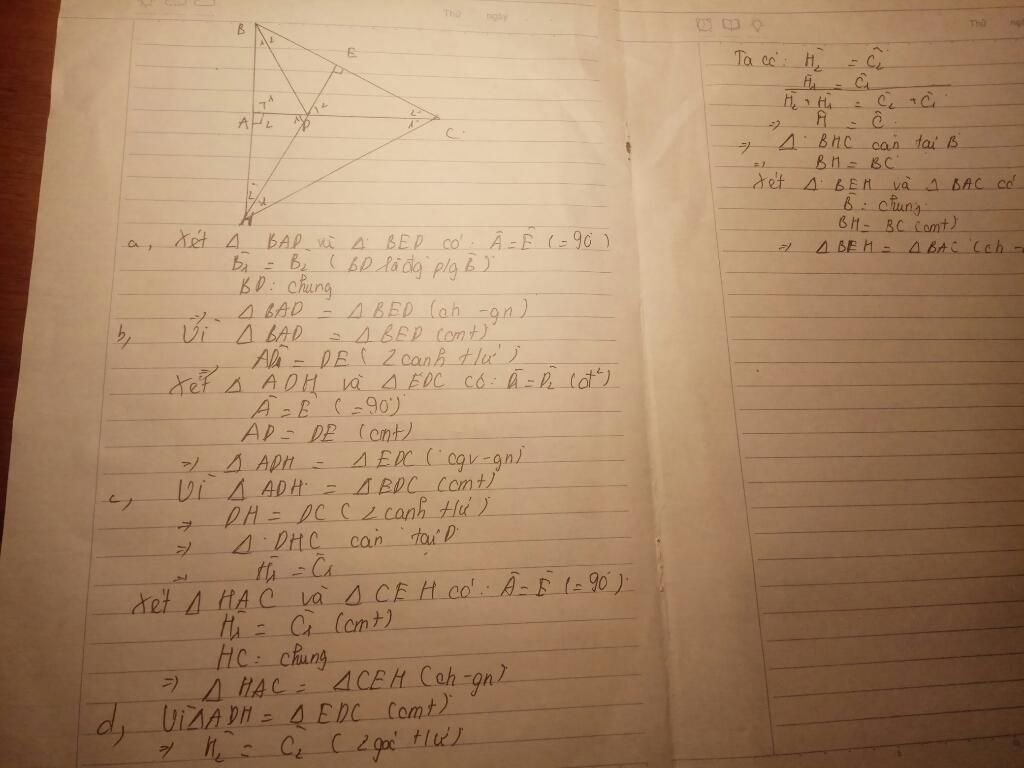 Thứ ngày
B
1 2
E
A
1
2
D
1 2
C
2
1
2 1
a, Xét Δ BAD và Δ BED có: Â = Ê (= 90°)
B̂1 = B̂2 (BD là đg p/g B̂)
BD: chung
=> Δ BAD = Δ BED (ch - gn)
b, Vì Δ BAD = Δ BED (cmt)
= DE (2 cạnh t/ứ)
Xét Δ ADH và Δ EDC có: = D̂2 (đ²)
Â = Ê (= 90°)
AD = DE (cmt)
=> Δ ADH = Δ EDC (cgv - gn)
c, Vì Δ ADH = Δ BDC (cmt)
=> DH = DC (2 cạnh t/ứ)
=> Δ DHC cân tại D
=> Ĥ1 = Ĉ1
Xét Δ HAC và Δ CEH có: Â = Ê (= 90°)
Ĥ1 = Ĉ1 (cmt)
HC: chung
=> Δ HAC = Δ CEH (ch - gn)
d, Vì Δ ADH = Δ EDC (cmt)
=> Ĥ2 = Ĉ2 (2 góc t/ứ)
Thứ ngày
Ta có: Ĥ2 = Ĉ2
Ĥ1 = Ĉ1
Ĥ2 + Ĥ1 = Ĉ2 + Ĉ1
=> Ĥ = Ĉ
=> Δ BHC cân tại B
=> BH = BC
Xét Δ BEH và Δ BAC có
B̂: chung
BH = BC (cmt)
=> Δ BEH = Δ BAC (ch -